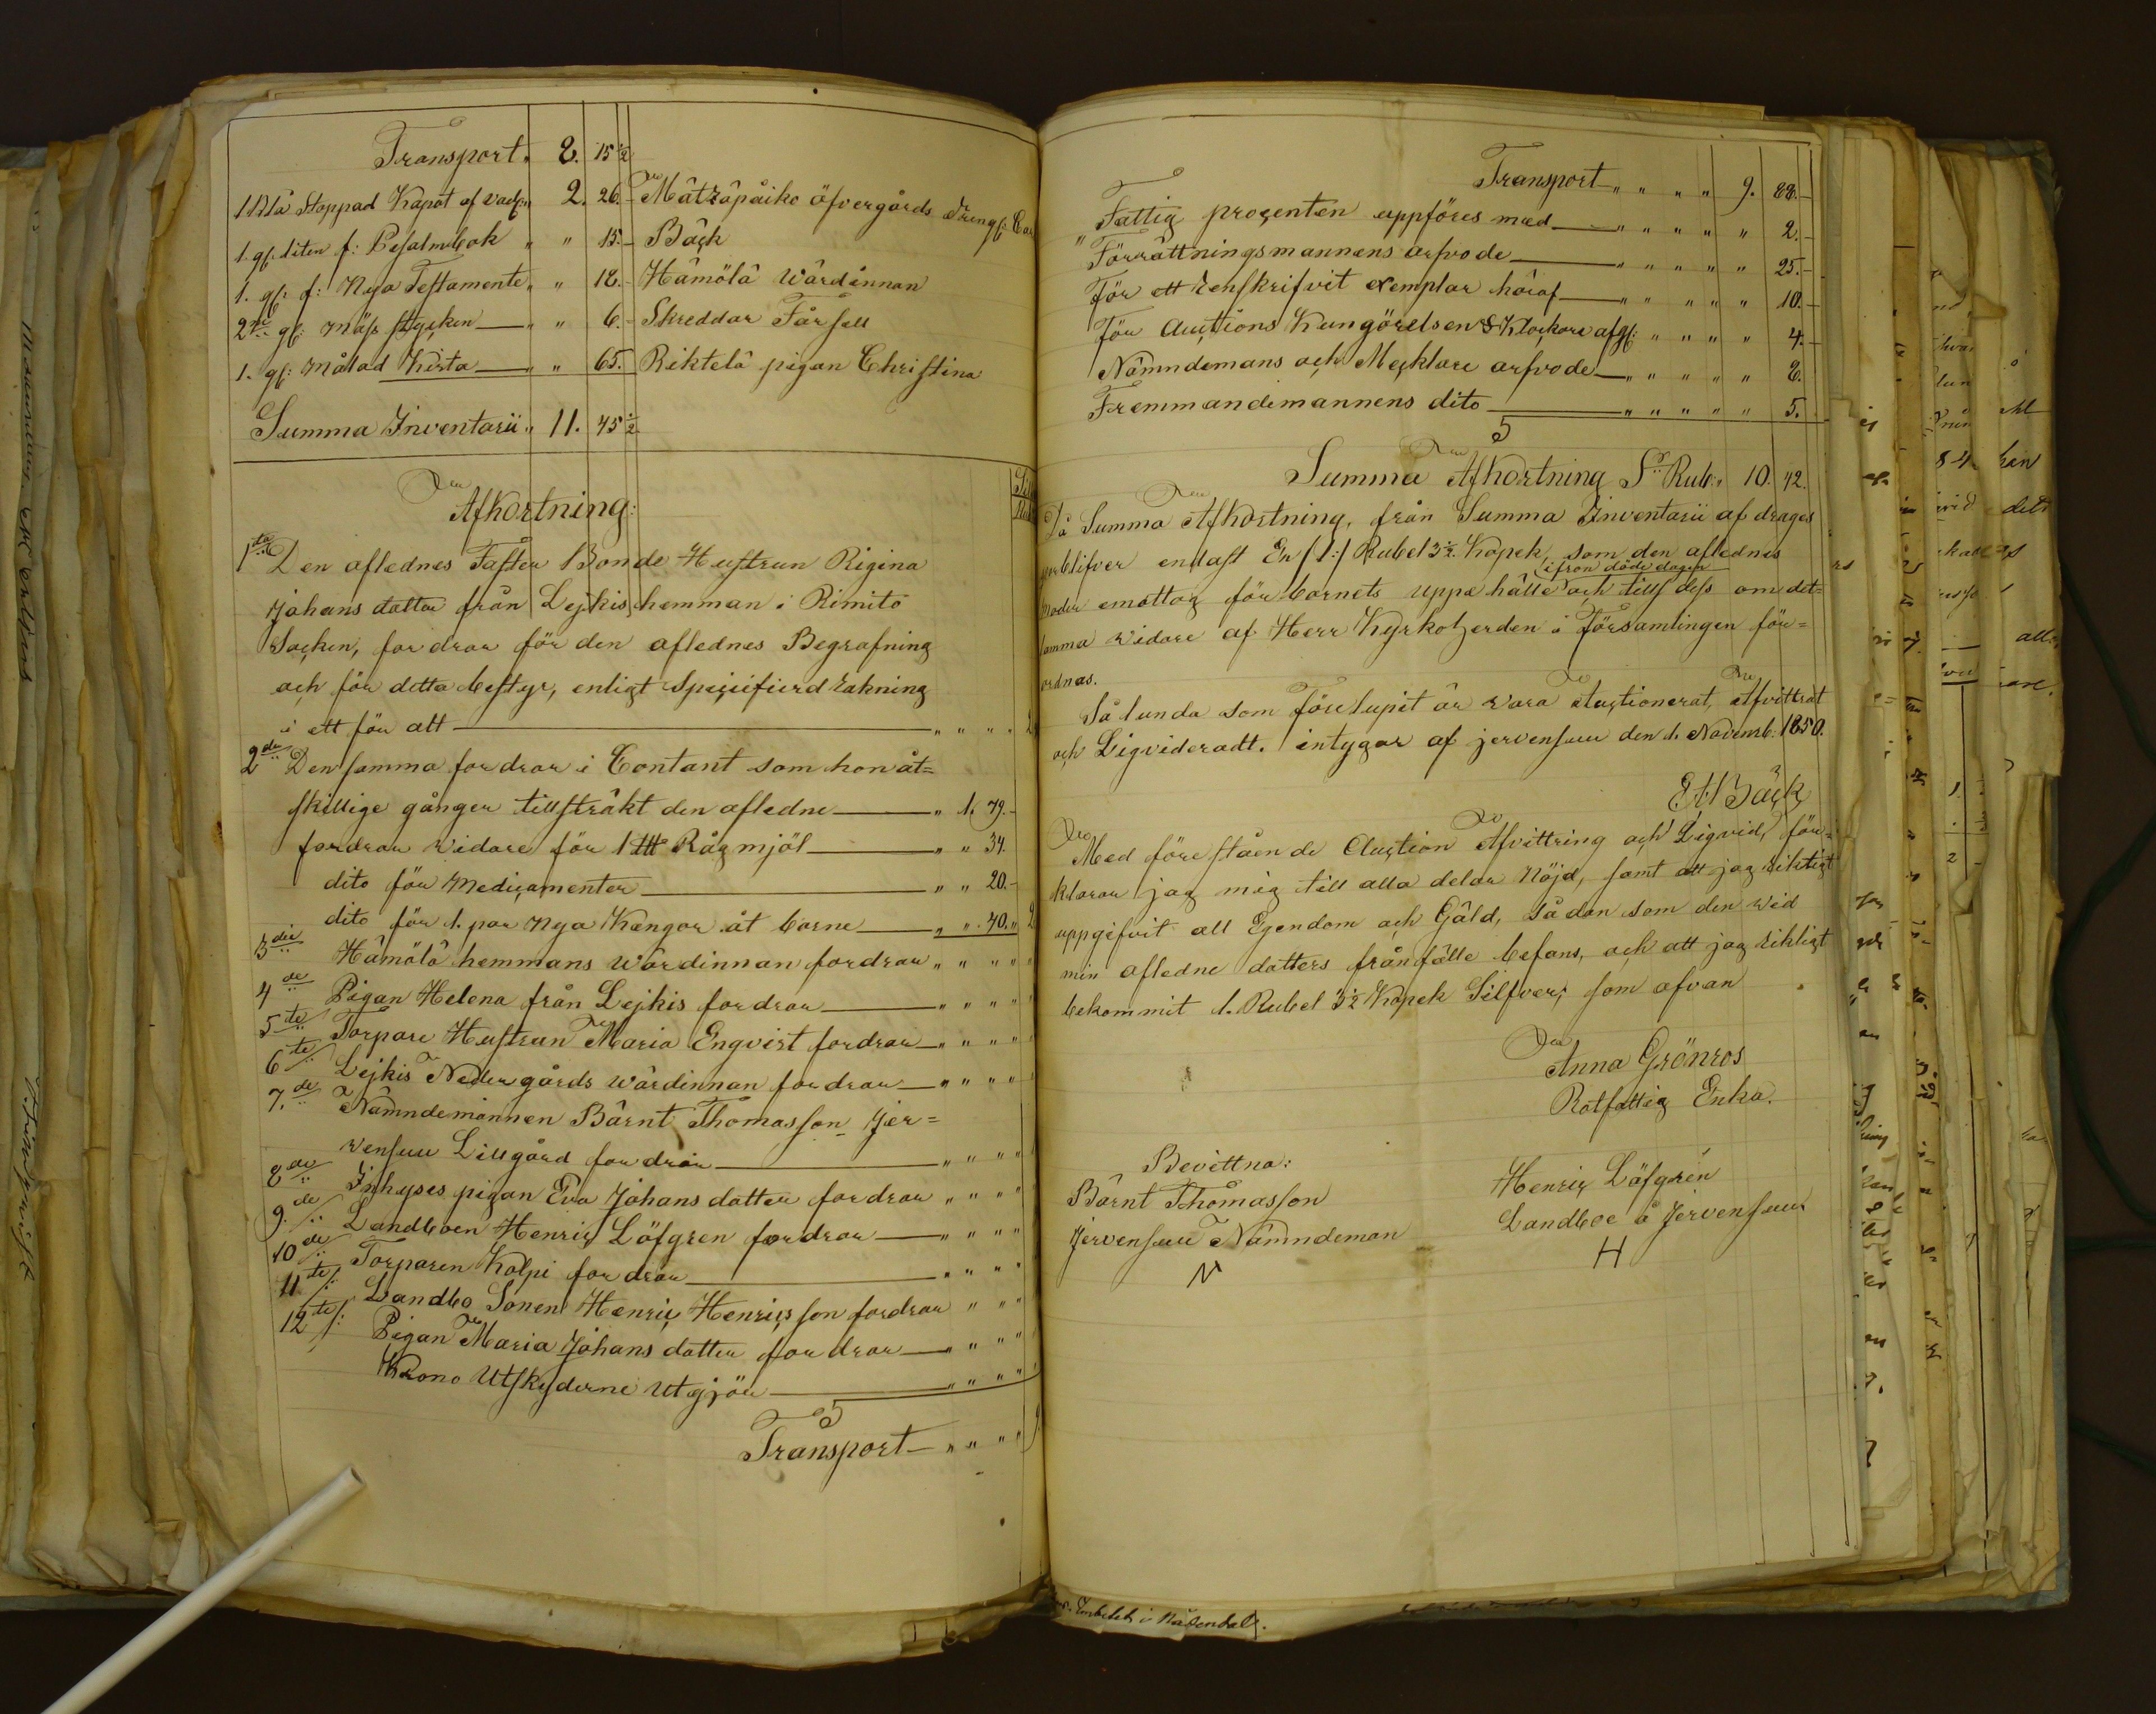 Transport " 8. 15 ½
1 Blå Stoppad Kapot af vadm " 2. 26.- Mâtzâpâiko öfvergårds Dreng
1. gl: liten f: Pesalmbok " " 15.- Bäck
1. gl: f: Nya Testamente " " 18.- Hâmölâ wärdinnan
2ne gl: Mäss stycken " " 6.- Skreddar Fårsell
1. gl: Målad Kista " " 65. Riktelâ pigan Christina
Summa Inventarii " 11. 45 ½
Afkortning:
1sta Den aflednes Faster Bonde Hustrun Rigina
Johans dotter från Lejkis hemman i Rimito
Socken, fordrar för den aflednes Begrafning
och för detta bestyr, enligt Specifierd räkning
i ett för allt " " "
2dre Densamma fordrar i Contant som hon åt=
skillige gånger tillsträkt den afledne " 1. 79.-
fordrar vidare för 1 ₶ Rågmjöl " " 34.
dito för Medicamenter " " 20.-
dito för 1. par Nya Kängor åt barne " " 40. "
3die Hâmölâ hemmans wärdinnan fordrar " " " "
4de Pigan Helena från Lejkis fordrar " " " "
5te Torpare Hustrun Maria Engvist fordrar " " " "
6te Lejkis Nedergårds wärdinnan fordrar " " " "
7.de Nämndemannen Bärnt Thomasson Jer=
vensuu Lillgård fordrar " " " "
8de Inhyses pigan Eva Johans dotter fordrar " " " "
9.de Landboen Henric Löfgren fordrar " " " "
10de Torparen Kolpi fordrar " " "
11te Landbo Sonen Henric Henricsson fordrar " " "
12te/: Pigan Maria Johans dotter fordrar " " "
Krono Utskylderne Utgjör " " " "
Transport " " " "
Transport " " " " 9. 88.-
" Fattig procenten uppföres med " " " " " 2.-
Förrättningsmannens arfvode " " " " " 25.-
För ett Renskrifvit exemplar häraf " " " " " 10.-
För Auctions Kungörelsen & Klockare afgl: " " " " 4.-
Nämndemans och Mecklare arfvode " " " " " 8.
Fremmandemannens dito " " " " " 5.
Summa Afkortning Sr Rub: " 10. 42.
Då Summa Afkortning, från Summa Inventarii af drages
blifver endast En /1:/ Rubel 3½ Kopek, som den aflednes
ifron döds dagen
moder emottog för barnets uppehälle och tills dess om det=
samma vidare af Herr Kyrkoherden i Församlingen för=
ordnas.
Sålunda som Förelupit är vara Auctionerat, Afvittrat
och Liqvideradt. intygar af jervensuu den 1. Novemb: 1850.
Bäck
Med föreståen de Auction Afvittring och Liqvid, för=
klarar jag mig till alla delar Nöjd, samt att jag riktigt
uppgifvit all Egendom och Gäld, sådan som den vid
min afledne dotters frånfälle befans, och att jag riktigt
bekommit 1. Rubel 3½ Kopek Silfver; som ofvan
Anna Grönros
Rotfattig Enka.
Bevittna:
Bärnt Thomasson
Jervensuu Nämndeman
N
Henric Löfgren
Landboe å Jervensuu
H
Embetet i Nådendal.